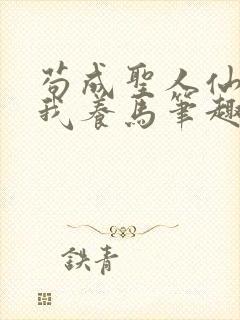 苟成聖人仙
我養馬筆趣
鉄青